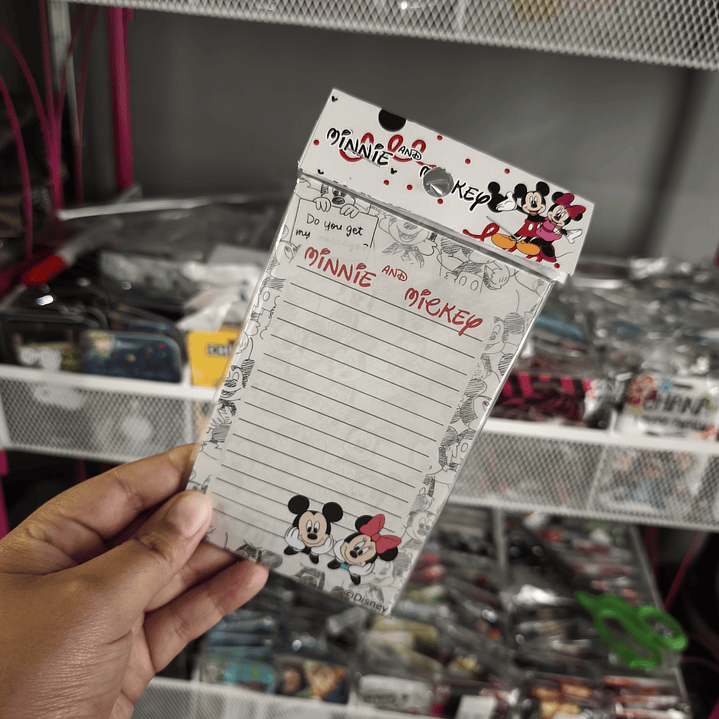 MINNIE AND MICKEY
Do you get
my message?
MINNIE AND MICKEY
©Disney
OHANA